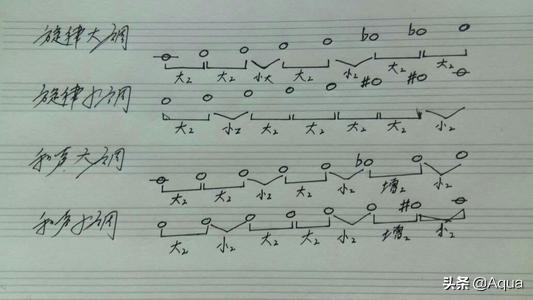 旋律大调
b b
大2 大2 小大 大2 小2 大2 大2
旋律小调
# #
大2 小2 大2 大2 大2 大2 小2
和声大调
b
大2 大2 小2 大2 小2 增2 小2
和声小调
#
大2 小2 大2 大2 小2 增2 小2
头条 @Aqua